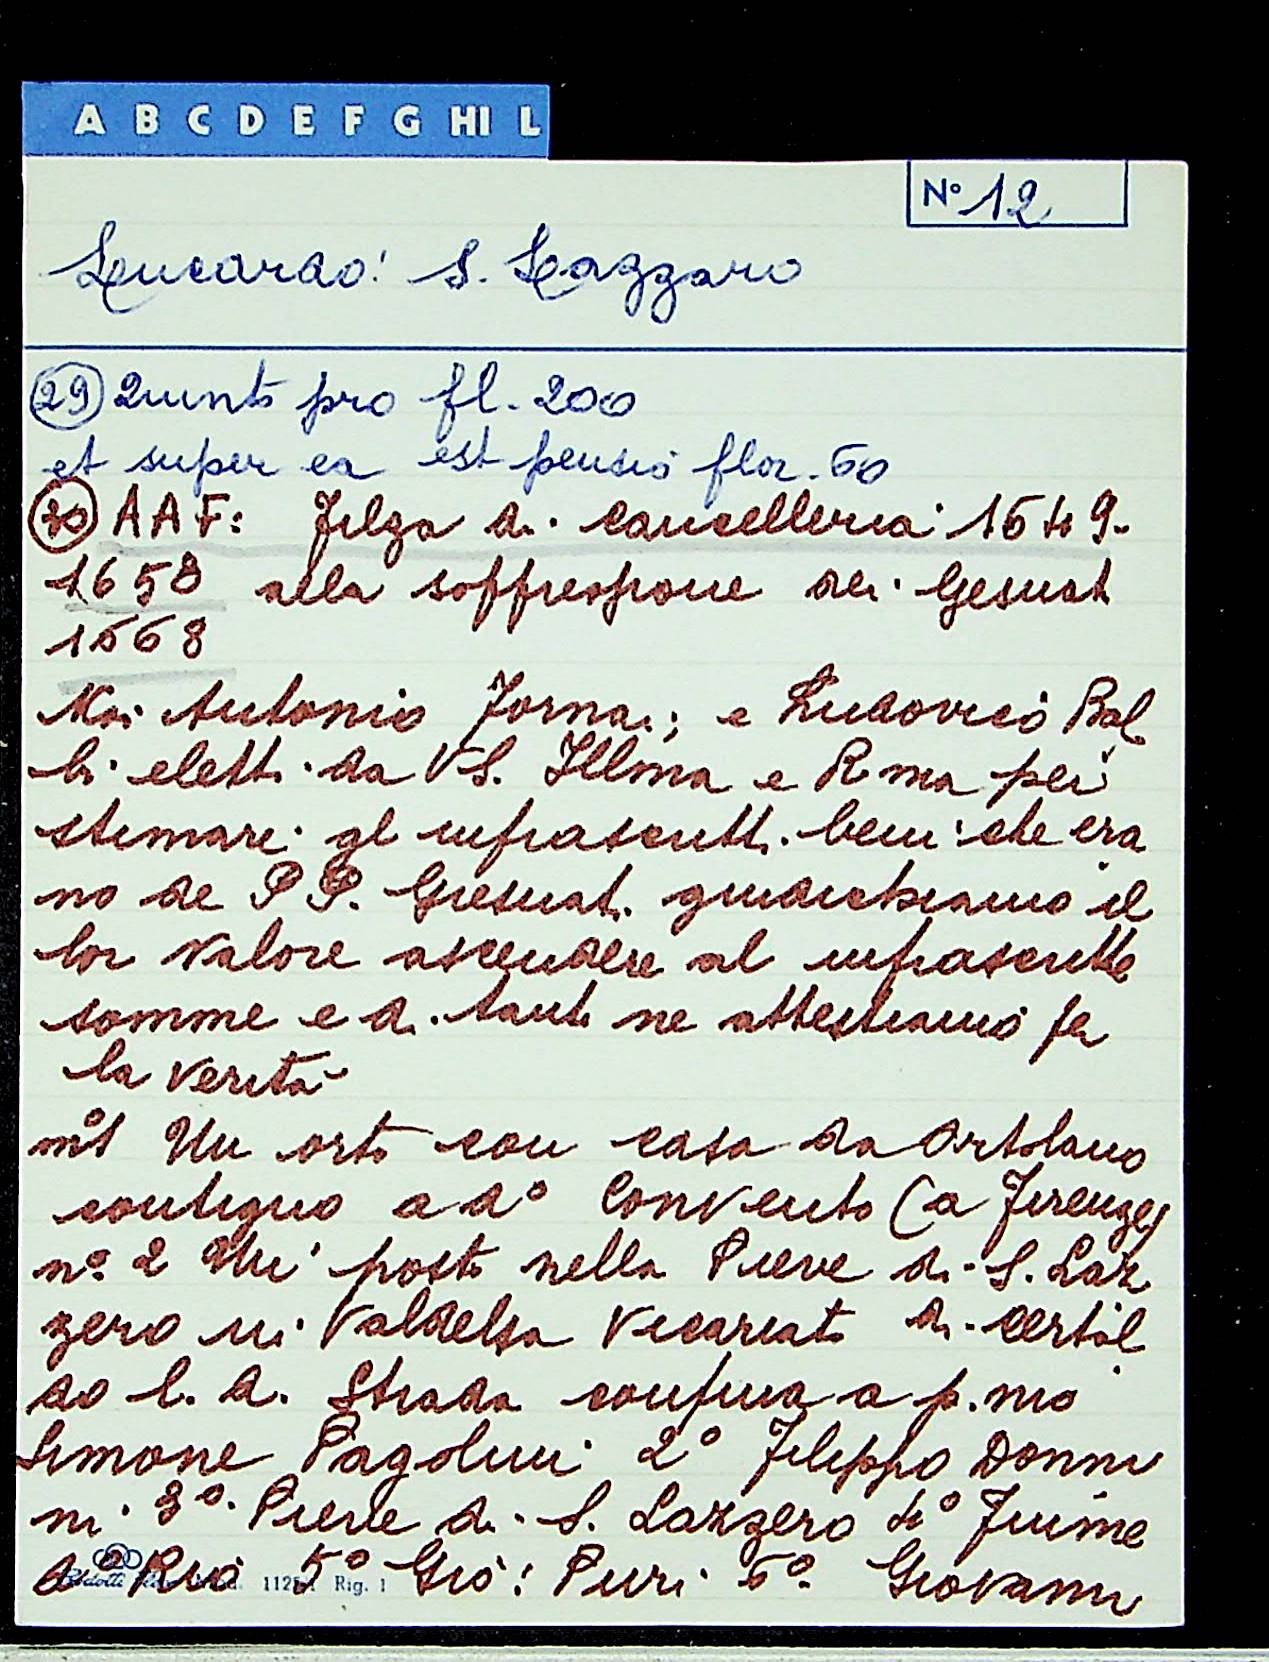 A B C D E F G HI L
N° 12
Lucardo: S. Lazzaro
(29) Quinto pro fl. 200
et super ea est pensio flor. 60
(30) AAF: Filza di cancelleria 1649-
1658 alla soppressione dei Gesuat
1668
Noi Antonio Fornai; e Ludovico Bal
bi eletti da VS. Illma e Rma per
stimare gl infrascritti beni che era
no de PP. Giesuati giudichiamo il
lor valore ascendere al infrascritte
somme e di tanto ne attestiamo per
la verità
n°1 Un orto con casa da Ortolano
contiguo a d° Convento (a Firenze)
n° 2 Un posto nella Pieve di S. Laz
zero in Valdelsa Vicariato di Certal
do l. d. Strada confina a p.mo
Simone Pagolini 2° Filippo Donni
ni 3° Pieve di S. Lazzero 4° Fiume
o Rio 5° Gio: Puri 6° Giovanni
1125 Rig. 1